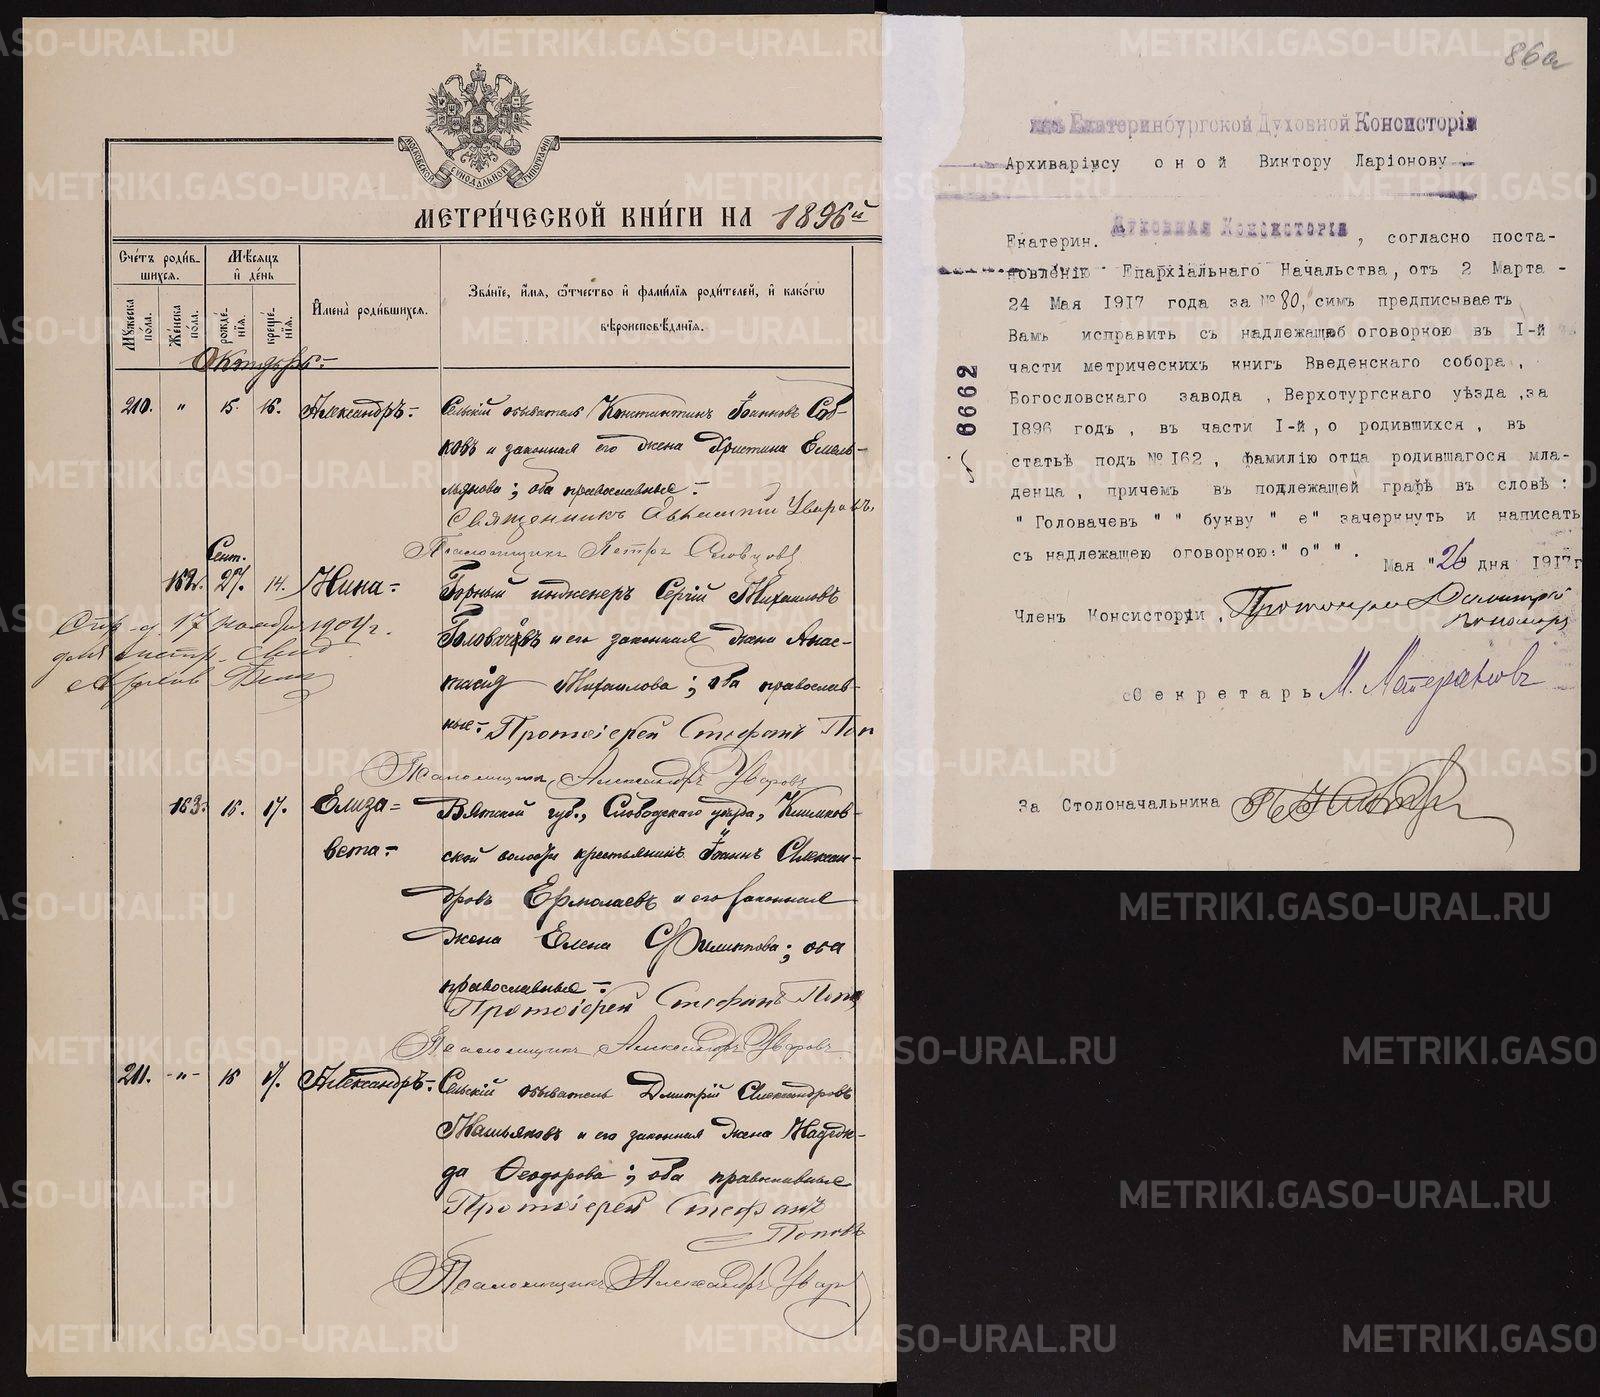 МОСКОВСКОЙ СѴНОДАЛЬНОЙ ТИПОГРАФІИ
МЕТРИ́ЧЕСКОЙ КНИ́ГИ НА 1896й
Сче́тъ роди́вшихся.
Мѣсяцъ и де́нь
Имена̀ роди́вшихся.
Зва́ніе, и́мя, ѻ́тчество и фами́лія роди́телей, и како́гѡ вѣроисповѣ́данія.
Мꙋ́жеска по́ла.
Же́нска по́ла.
рожде́нія.
креще́нія.
Октябрь
210. " 15. 16. Александръ. Сельскій обыватель Константинъ Іоанновъ Соб-
ковъ и законная его жена Христина Емель-
льянова; оба православные.
Священникъ Уваровъ
Псаломщикъ Петръ Словцовъ
Сент.
162. 27. 14. Нина Горный инженеръ Сергій Михаиловъ
Головачевъ и его законная жена Анас-
тасія Михаилова; оба православ-
ные. Протоіерей Стефанъ Поп
Псаломщикъ Александръ Уваровъ
17 ноября 1904г.
163. 16. 17. Елиза-
вета Вятской губ., Слободскаго уѣзда, Климков-
ской волости крестьянинъ Іоаннъ Алексан-
дровъ Ермолаевъ и его законная
жена Елена Филиппова; оба
православные
Протоіерей Стефанъ Попо
Псаломщикъ Александръ Уваровъ
211. -"- 16 17. Александръ. Сельскій обыватель Дмитрій Александровъ
Машьяновъ и его законная жена Надеж-
да Ѳеодорова; оба православные
Протоіерей Стефанъ
Поповъ
Псаломщикъ Александръ Увар
86а
Екатеринбургской Духовной Консисторіи
Архиваріусу оной Виктору Ларіонову
Екатерин. Духовная Консисторія, согласно поста-
новленію Епархіальнаго Начальства, отъ 2 Марта -
24 Мая 1917 года за № 80, симъ предписываетъ
Вамъ исправить съ надлежащею оговоркою въ I-й
части метрическихъ книгъ Введенскаго собора,
Богословскаго завода, Верхотурскаго уѣзда, за
1896 годъ, въ части I-й, о родившихся, въ
статьѣ подъ № 162, фамилію отца родившагося мла-
денца, причемъ въ подлежащей графѣ въ словѣ:
"Головачевъ" " букву "е" зачеркнуть и написать
съ надлежащею оговоркою: "о" ".
Мая "26 дня 1917г
6662
Членъ Консисторіи, Протоіерей Димитрій
Секретарь М. Матераповъ
За Столоначальника